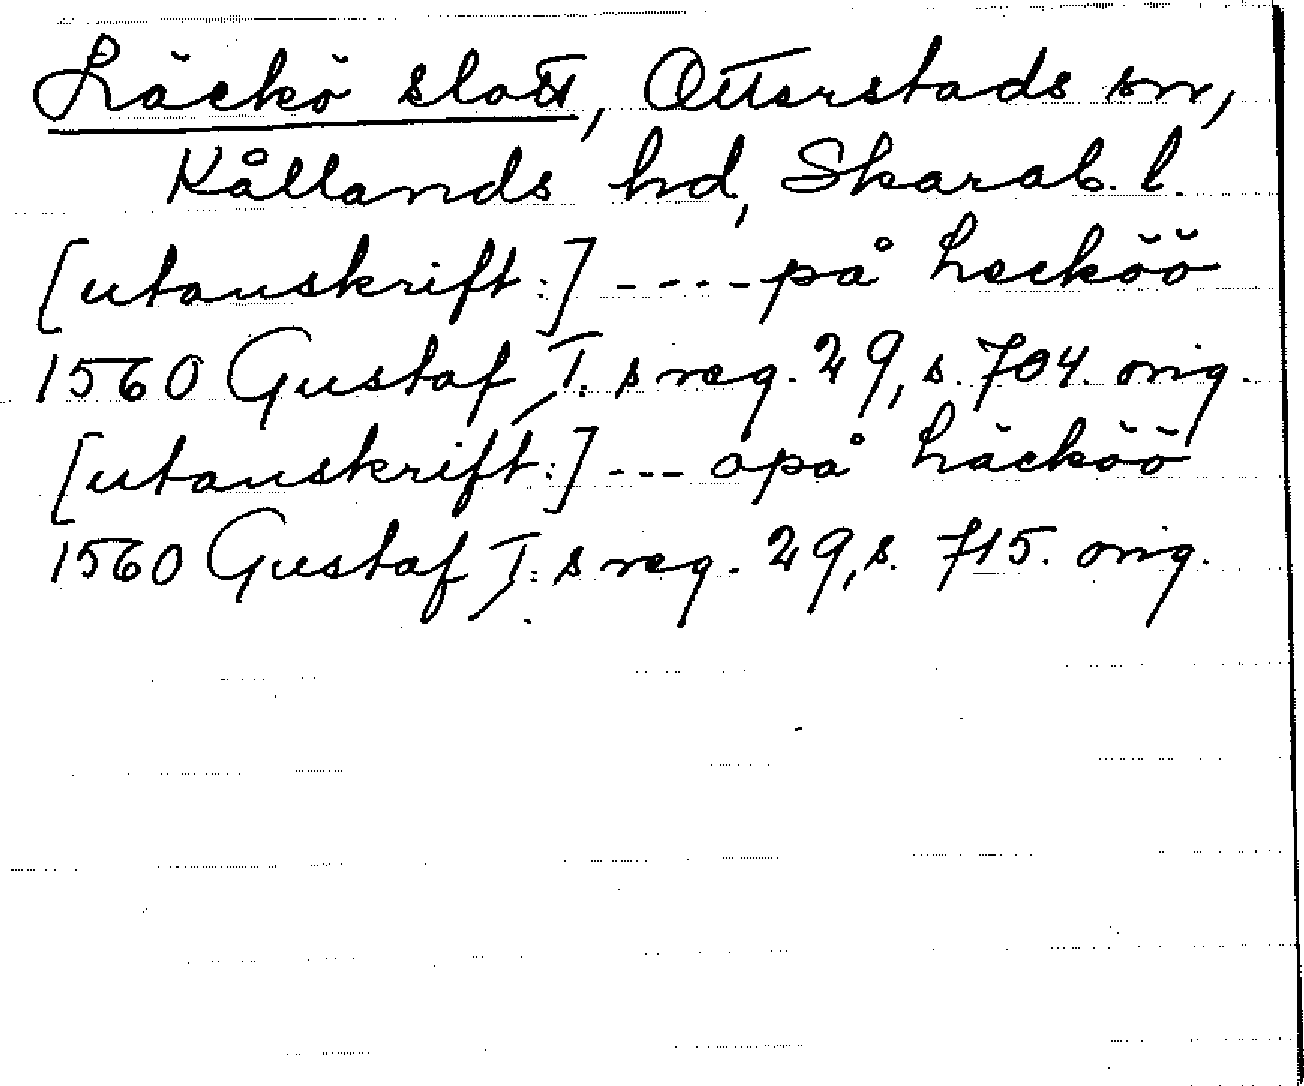 Läckö slott, Otterstads sn,
Kållands hd, Skarab. l.
[utanskrift:] ---- på Lecköö
1560 Gustaf I:s reg. 29, s. 704. orig.
[utanskrift:] --- opå Läcköö
1560 Gustaf I:s reg. 29, s. 715. orig.